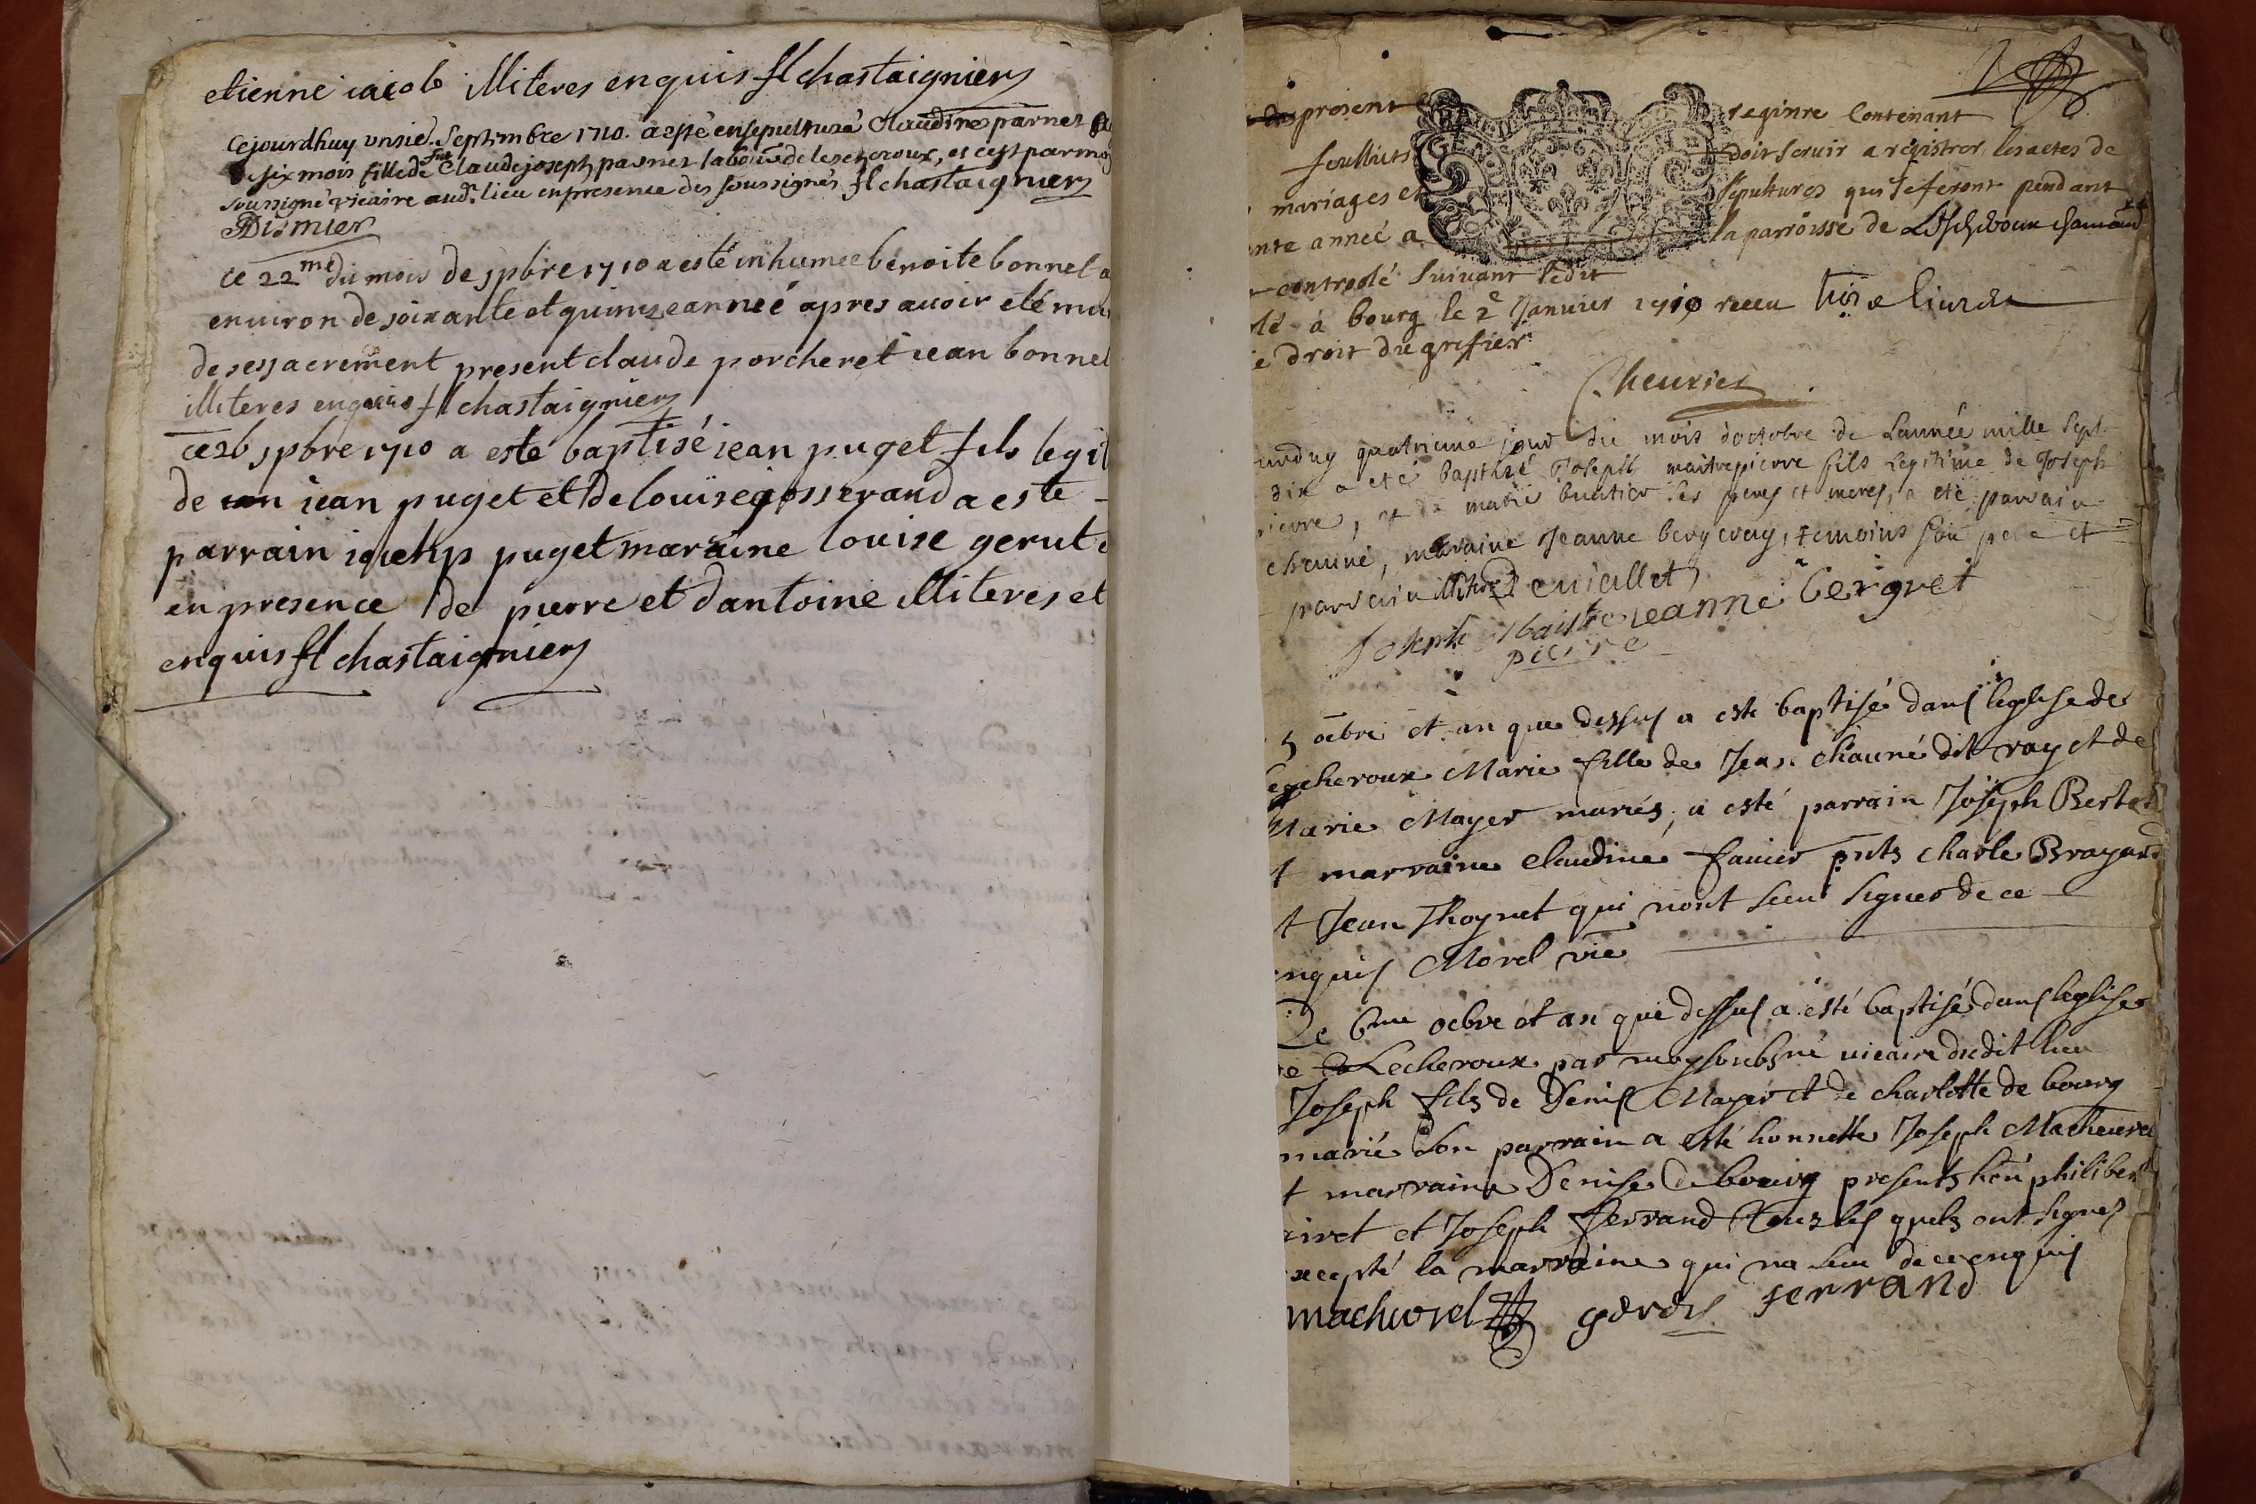 etienne iacob illiteres enquis fl chastaigniers
Cejourdhuy unsie. Septembre 1710. a esté ensepulturé Claudine parnet
six mois fille de Claude joseph parnet labour de lescheroux, et c'est par moy
soussigné vicaire aud. lieu en presence des soussignés fl chastaigniers
Dismier
ce 22me du mois de 7pbre 1710 a esté inhumee benoite bonnel a
environ de soixante et quinze anneé apres avoir eté mu
de ses sacrement present claude porcheret iean bonnel
illiteres enquis fl chastaigniers
ce 26 7pbre 1710 a este baptisé iean puget fils legit
de iean puget et de louise gosserand a este
parrain ioseph puget maraine louise gerut
en presence de pierre et dantoine illiteres et
enquis fl chastaigniers
present regitre Contenant
feulliets doit servir a régistrer les actes de
mariages et sépultures qui se feront pendant
ante anneé a la parroisse de
controolé suivant lédit
lé à bourg le 2e Janvier 1710 receu trois livres
le droit du grefier
Cheurier
quatrieme jour du mois d'octobre de l'année mille sept
dix a eté baptisé Joseph maitrepierre fils legitime de Joseph
pierre, et de marie buatier ses peres et meres, a eté parrain
chauné, maraine Jeanne bergeray, temoins son pere et
parrain cuiallet
Joseph Maistre jeanne bergret
pierre
5 oebre et an que dessus a esté baptisé dans l'eglise de
lescheroux Marie fille de Jean chauné dit ray et de
Marie Mayer mariés, a esté parrain Joseph Bertet
t marraine claudine favier pnts charle Brayard
t Jean Thoynet qui n'ont sceu signer de ce
enquis Morel vic
Le 6me oebre et an que dessus a esté baptisé dans l'eglise
de Lecheroux par moy soubsné vicaire dudit lieu
Joseph fils de Denis Mayer et de charlotte de bourg
marié son parrain a esté honnette Joseph Macheurel
t marraine Denise de bourg presents hon philibert
et Joseph ferrand tous lesquels ont signés
xcepté la marraine qui n'a sceu de ce enquis
machurel ferrand